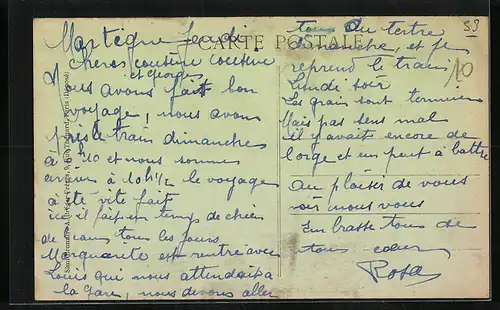 Martigne jeudi
CARTE POSTALE
chers cousine cousine
et Georges
Nous avons fait bon
voyage, nous avons
pris le train dimanche
à et nous sommes
arrivés à 10h ½ le voyage
a été vite fait
ici il fait un temps de chien
de l'eau tous les jours
Marguerite est rentré avec
Louis qui nous attendait à
la gare, nous devons aller
tous au tertre
dimanche, et je
reprend le train
lundi soir
Les grains sont terminés
Mais pas sans mal
il y avait encore de
l'orge et un peu à battre
au plaisir de vous
voir nous vous
Embrasse tous de
tout coeur
Rosa
53
10